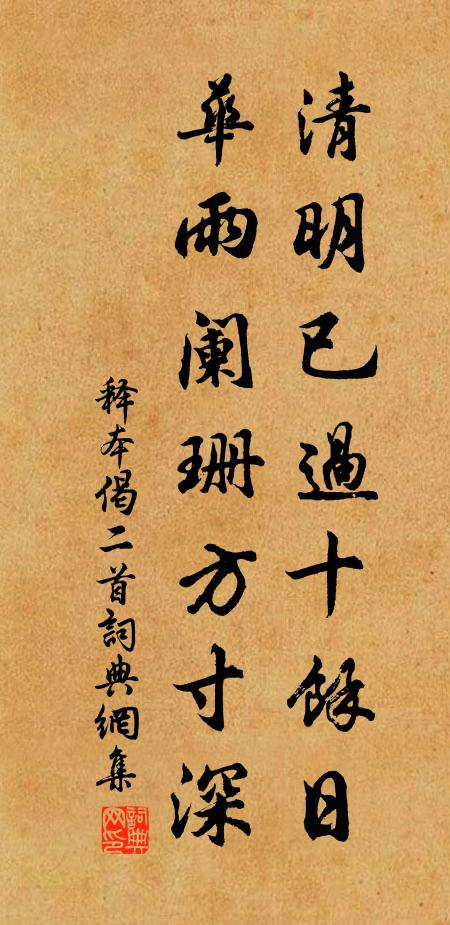 清明已過十餘日
華雨阑珊方寸深
释本偈二首詞典網集
詞典網印